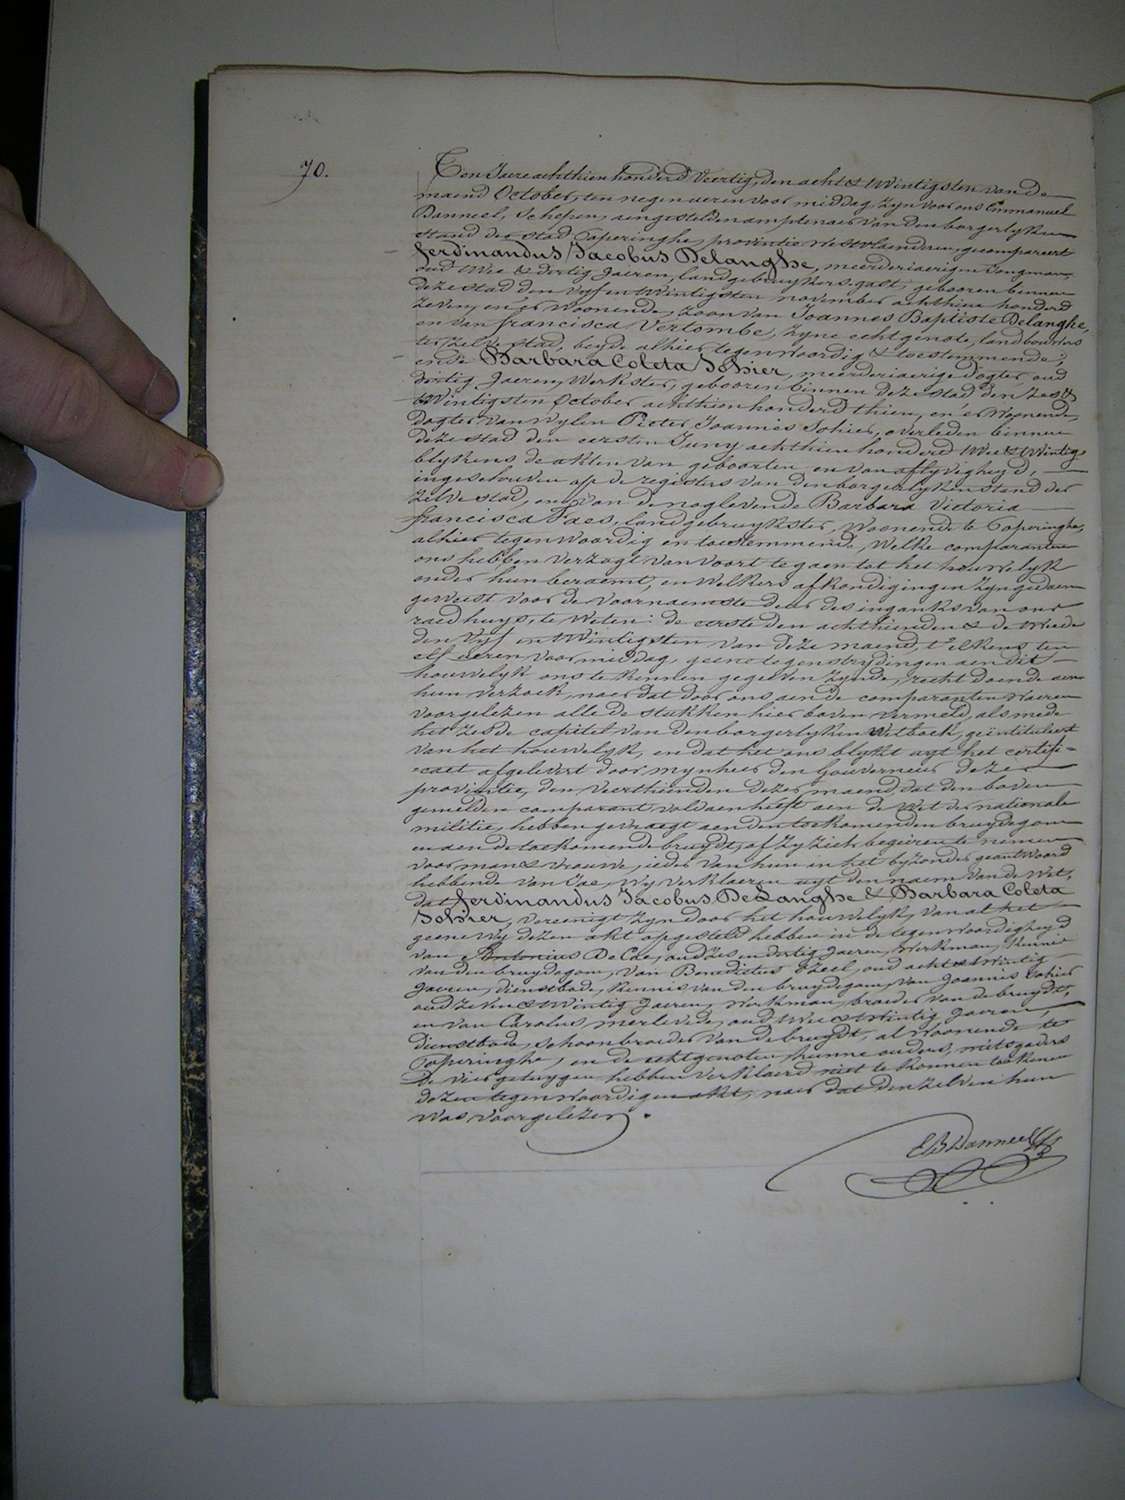 70.
Ten Jaere achthien honderd Veertig, den acht & twintigsten van de
maend October, ten negen aeren voor middag, zyn voor ons Emmanuel
Danneel, Schepen, aengestelden amptenaer van den borgerlyken
stand der stad Poperinghe, provintie westvlaenderen, gecompareert
Ferdinandus Jacobus Delanghe, meerderjaerigen Jongman,
oud twee & dertig Jaeren, landgebruykers gast, gebooren binnen
deze stad den vyf en twintigsten november achthien honderd
zeven, en er woonende, zoon van Joannes Baptiste Delanghe,
en van francisca Vertombe, zyne echtgenote, landbouwers
ter zelve stad, beyde alhier tegenwoordig & toestemmende;
ende Barbara Coleta Sohier, meerderjaerige dogter, oud
dertig Jaeren, Werkster, gebooren binnen deze stad den zes &
twintigsten October achthien honderd thien, en er Woonende,
dogter van wylen Pieter Joannes Sohier, overleden binnen
deze stad den eersten Juny achthien honderd twee & twintig
blykens de akten van geboorten en van aflyvigheyd,
ingeschreven op de registers van den borgerlyken stand der
zelve stad, en van de nageblevende Barbara Victoria
francisca Faes, landgebruykster, Woonende te Poperinghe,
alhier tegenwoordig en toestemmende, Welke comparanten
ons hebben verzogt van voort te gaen tot het houwelyk
onder hun beraemt, en welkers afkondigingen zyn gedaen
geweest voor de voornaemste deur des ingangs van ons
raedhuys, te weten: de eerste den achthienden & de twede
den vyf en twintigsten van deze maend, t'elkens ten
elf aeren voor middag, geene tegenstrydingen aen dit
houwelyk ons te kennen gegeven zynde, recht doende aen
hun verzoek, naer dat door ons aen de comparanten waeren
voorgelezen alle de stukken hier boven vermeld, als mede
het zesde capitel van den borgerlyken wetboek, geïntituleert
van het houwelyk, en dat het ons blykt uyt het certifi=
=caet afgelevert door mynheer den Gouverneur dezer
provintie, den veerthienden dezer maend, dat den boven
gemelden comparant voldaen heeft aen de wet der nationale
militie, hebben gevraegt aen den toekomenden bruydegom
en aen de toekomende bruydt, of zy zich begeiren te nemen
voor man & vrouwe, ieder van hun in het byzonder geantwoord
hebbende van Jae, Wy verklaeren uyt den naem van de wet,
dat Ferdinandus Jacobus Delanghe & Barbara Coleta
Sohier, vereenigt zyn door het houwelyk, van al het
geene wy dezen akt opgesteld hebben in de tegenwoordigheyd
van Antonius De Cae, oud zes en dertig Jaeren, Werkman, kennis
van den bruydegom, van Benedictus Ozeel, oud acht & twintig
Jaeren, dienstbode, kennis van den bruydegom, van Joannes Sohier
oud zeven & twintig Jaeren, Werkman, broeder van de bruydt,
en van Carolus Merlevede, oud twee & twintig Jaeren,
dienstbode, schoonbroeder van de bruydt, al woonende te
Poperinghe, en de echtgenoten, hunne ouders, mitsgaders
de vier getuygen hebben verklaerd niet te konnen teekenen
dezen tegenwoordigen akt, naer dat den zelven hun
was voorgelezen.
E B Danneel